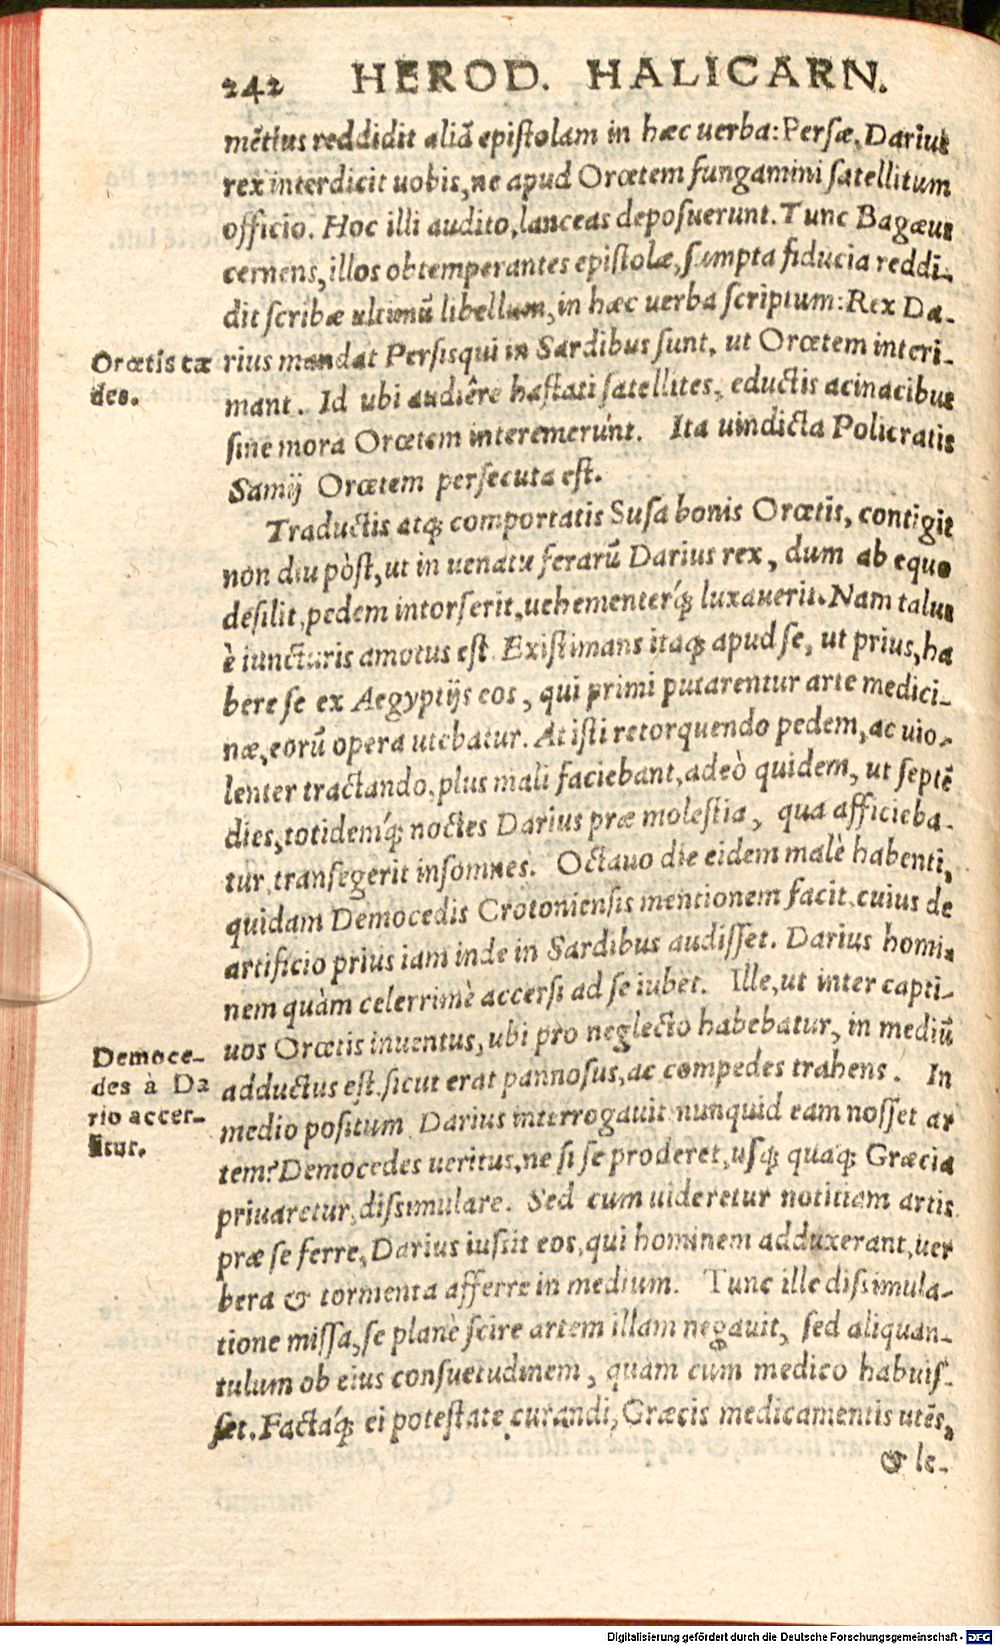 242 HEROD. HALICARN.
mẽtius reddidit aliã epistolam in hæc uerba: Persæ, Darius
rex interdicit uobis, ne apud Orœtem fungamini satellitum
officio. Hoc illi audito, lanceas deposuerunt. Tunc Bagæus
cernens, illos obtemperantes epistolæ, sumpta fiducia reddi-
dit scribæ ultimũ libellum, in hæc uerba scriptum: Rex Da-
rius mandat Persis qui in Sardibus sunt, ut Orœtem interi-
mant. Id ubi audiêre hastati satellites, eductis acinacibus
sine mora Orœtem interemerunt. Ita uindicta Policratis
Samij Orœtem persecuta est.
Orœtis cæ
des.
Traductis atq; comportatis Susa bonis Orœtis, contigit
non diu pòst, ut in uenatu ferarũ Darius rex, dum ab equo
desilit, pedem intorserit, uehementerq́; luxauerit. Nam talus
è iuncturis amotus est. Existimans itaq; apud se, ut prius, ha
bere se ex Aegyptijs eos, qui primi putarentur arte medici-
næ, eorũ opera utebatur. At isti retorquendo pedem, ac uio-
lenter tractando, plus mali faciebant, adeò quidem, ut septẽ
dies, totidemq́; noctes Darius præ molestia, qua afficieba-
tur, transegerit insomnes. Octauo die eidem malè habenti,
quidam Democedis Crotoniensis mentionem facit, cuius de
artificio prius iam inde in Sardibus audisset. Darius homi-
nem quàm celerrimè accersi ad se iubet. Ille, ut inter capti-
uos Orœtis inuentus, ubi pro neglecto habebatur, in mediũ
adductus est, sicut erat pannosus, ac compedes trahens. In
medio positum Darius interrogauit nunquid eam nosset ar
tem? Democedes ueritus, ne si se proderet, usq; quaq; Græcia
priuaretur, dissimulare. Sed cum uideretur notitiam artis
præ se ferre, Darius iussit eos, qui hominem adduxerant, uer
bera & tormenta afferre in medium. Tunc ille dissimula-
tione missa, se planè scire artem illam negauit, sed aliquan-
tulum ob eius consuetudinem, quam cum medico habuis-
set. Factaq́; ei potestate curandi, Græcis medicamentis utẽs,
& le-
Democe-
des à Da
rio accer-
situr.
Digitalisierung gefördert durch die Deutsche Forschungsgemeinschaft - DFG